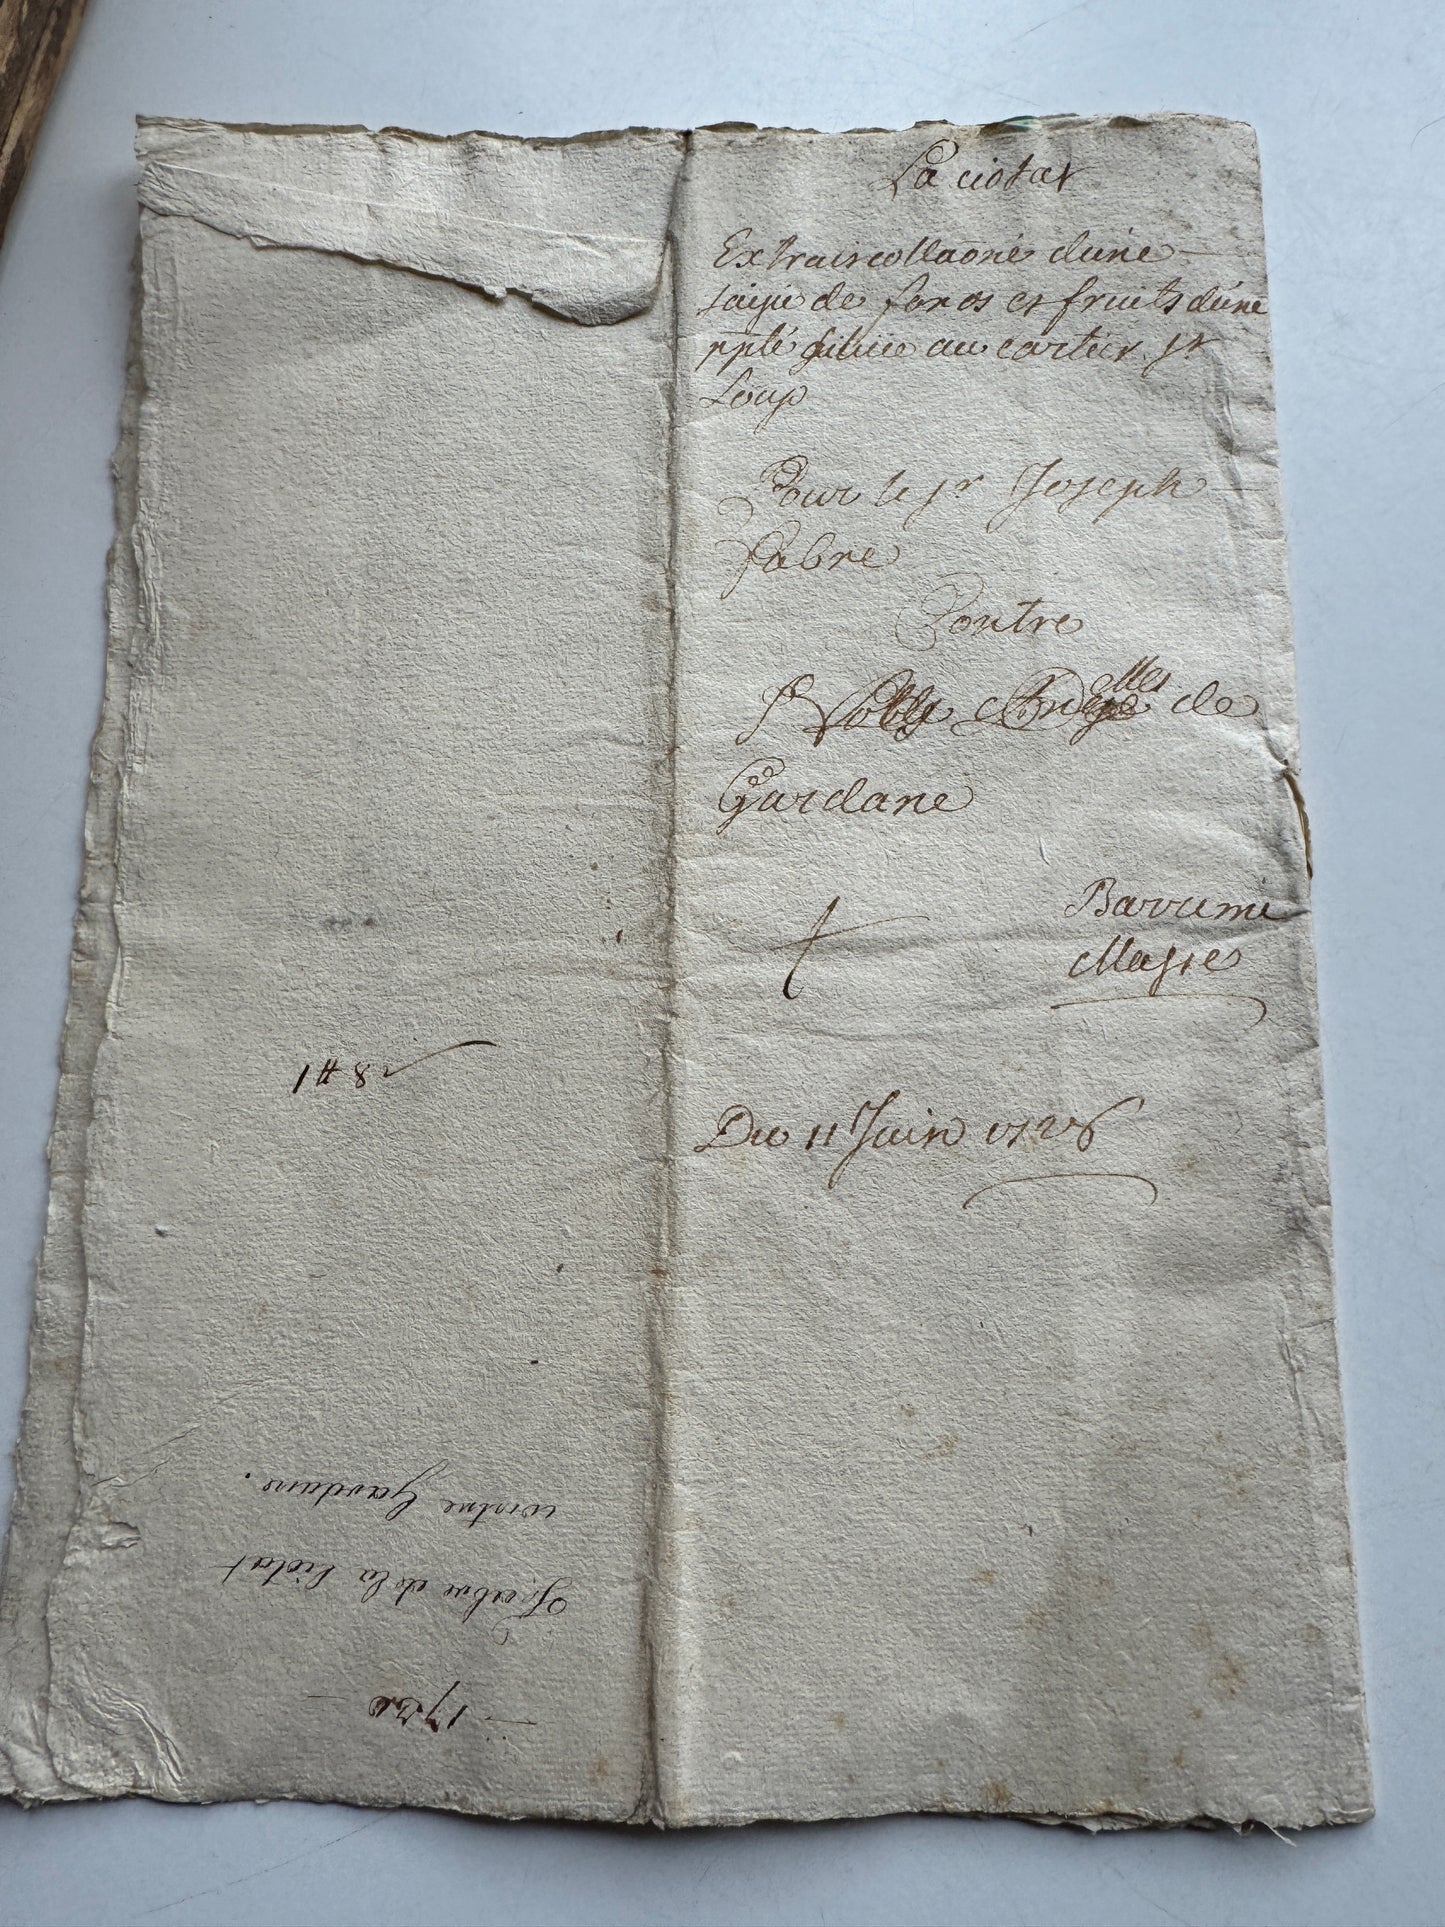 La ciotat
Extrais collaoné dune
saisie de fons et fruits dune
ppté située au cartier st
Loup
Pour le sr Joseph
Fabre
Contre
de
Gardane
Barremi
Masse
Du 11 Juin 1726
1# 8
1730
fabre de la Ciotat
contre Gardane.